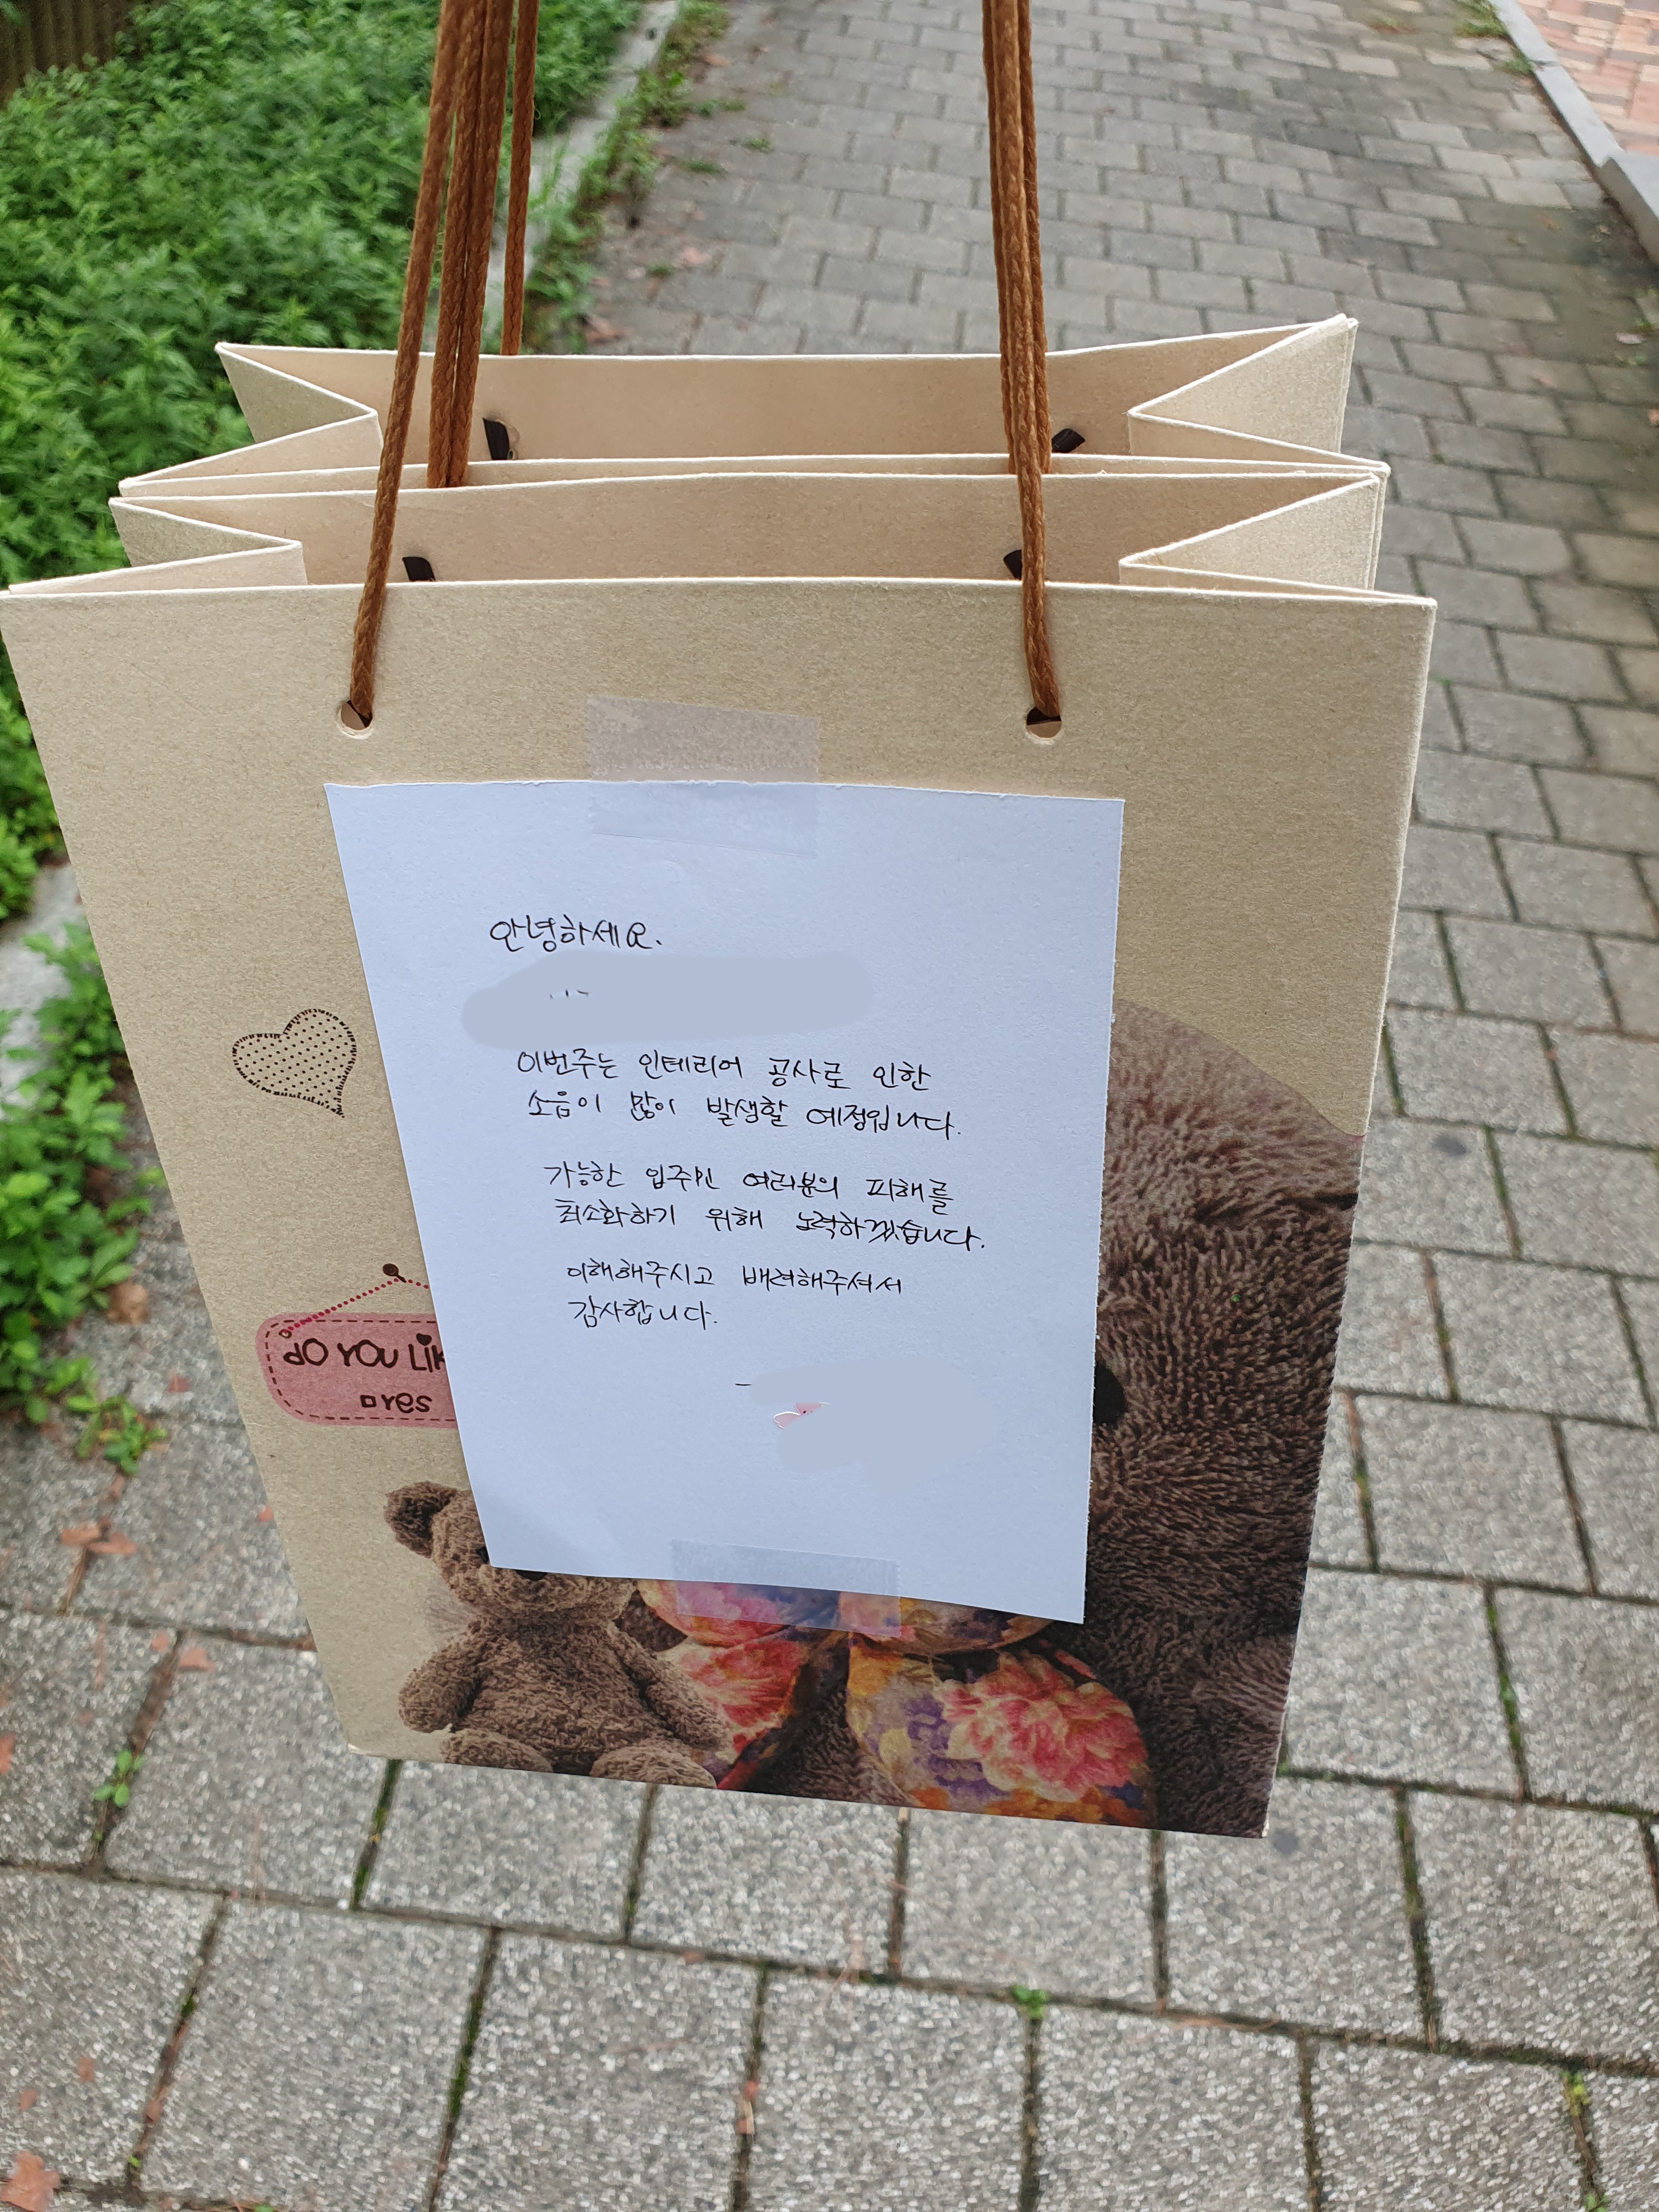 안녕하세요.
이번주는 인테리어 공사로 인한
소음이 많이 발생할 예정입니다.
가능한 입주민 여러분의 피해를
최소화하기 위해 노력하겠습니다.
이해해주시고 배려해주셔서
감사합니다.
dO YOU LiK
Yes